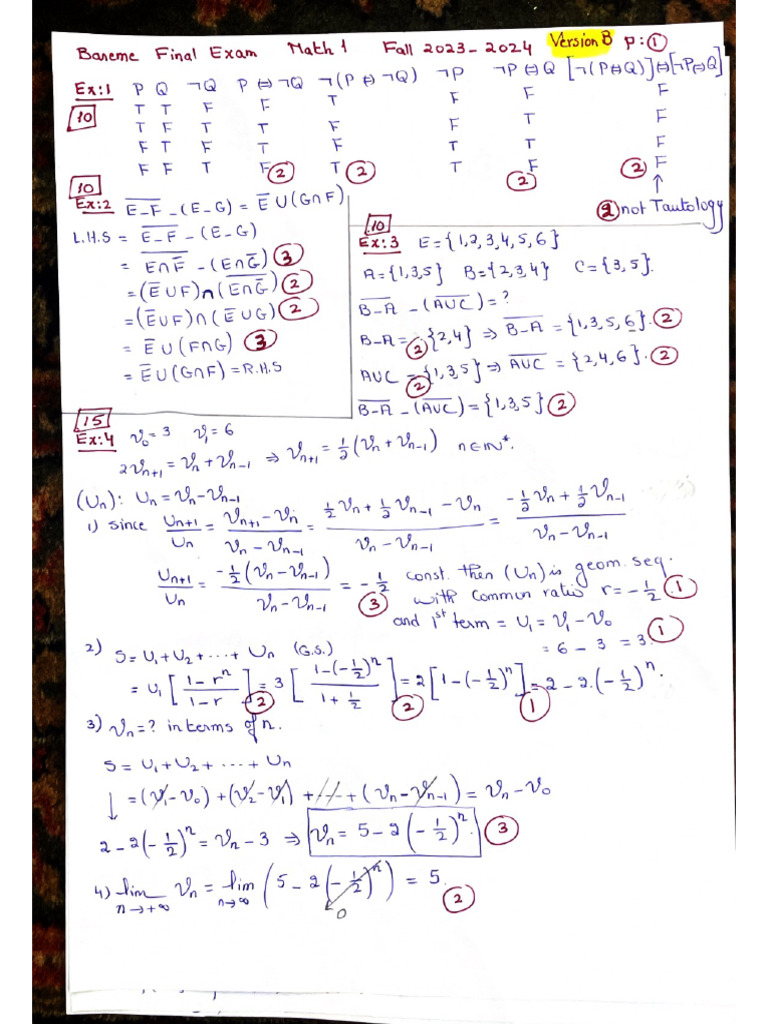 Bareme Final Exam Math 1 Fall 2023-2024 Version B p: ①
Ex:1 P Q ¬Q P ⇔ ¬Q ¬(P ⇔ ¬Q) ¬P ¬P ⇔ Q [¬(P⇔Q)] ⇔ [¬P⇔Q]
10 T T F F T F F F
T F T T F F T F
F T F T F T T F
F F T F ② T ② T F ② ② F
↑
② not Tautology
10
Ex:2 \overline{E-F} - (E-G) = \overline{E} ∪ (G∩F)
L.H.S = \overline{E-F} - (E-G)
= \overline{E∩\overline{F}} - (E∩\overline{G}) ③
= (\overline{E}∪F) ∩ (\overline{E∩\overline{G}}) ②
= (\overline{E}∪F) ∩ (\overline{E}∪G) ②
= \overline{E} ∪ (F∩G) ③
= \overline{E} ∪ (G∩F) = R.H.S
10
Ex:3 E = {1,2,3,4,5,6}
A = {1,3,5} B = {2,3,4} C = {3,5}.
\overline{B-A} - (\overline{A∪C}) = ?
B-A = ② {2,4} ⇒ \overline{B-A} = {1,3,5,6}. ②
A∪C = ② {1,3,5} ⇒ \overline{A∪C} = {2,4,6}. ②
\overline{B-A} - (\overline{A∪C}) = {1,3,5} ②
15
Ex:4 v_0 = 3 v_1 = 6
2v_{n+1} = v_n + v_{n-1} ⇒ v_{n+1} = \frac{1}{2}(v_n + v_{n-1}) n∈ℕ*.
(U_n): U_n = v_n - v_{n-1}
1) since \frac{U_{n+1}}{U_n} = \frac{v_{n+1} - v_n}{v_n - v_{n-1}} = \frac{\frac{1}{2}v_n + \frac{1}{2}v_{n-1} - v_n}{v_n - v_{n-1}} = \frac{-\frac{1}{2}v_n + \frac{1}{2}v_{n-1}}{v_n - v_{n-1}}
\frac{U_{n+1}}{U_n} = \frac{-\frac{1}{2}(v_n - v_{n-1})}{v_n - v_{n-1}} = -\frac{1}{2} ③ const. then (U_n) is geom. seq.
with common ratio r = -\frac{1}{2}. ①
and 1st term = U_1 = v_1 - v_0
= 6 - 3 = 3. ①
2) S = U_1 + U_2 + ... + U_n (G.S.)
= U_1 [\frac{1-r^n}{1-r}] ② = 3 [\frac{1-(-\frac{1}{2})^n}{1+\frac{1}{2}}] ② = 2[1-(-\frac{1}{2})^n] ① = 2 - 2.(-\frac{1}{2})^n.
3) v_n = ? in terms of n.
S = U_1 + U_2 + ... + U_n
↓ = (v_1 - v_0) + (v_2 - v_1) + ... + (v_n - v_{n-1}) = v_n - v_0
2 - 2(-\frac{1}{2})^n = v_n - 3 ⇒ v_n = 5 - 2(-\frac{1}{2})^n. ③
4) \lim_{n→+∞} v_n = \lim_{n→∞} (5 - 2(-\frac{1}{2})^n) = 5. ②
0